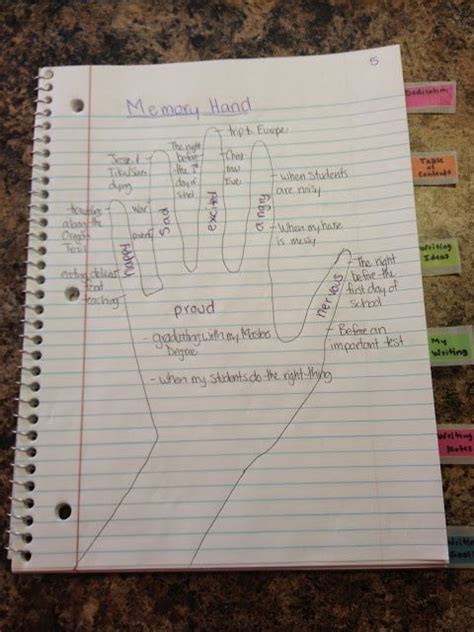 5
Memory Hand
trip to Europe
The night
before
the 1st
day of
school
Christ
mas
Eve
Jesse &
dying
war
when students
are noisy
When my house
is messy
traveling
along the
Oregon
Trail
eating delicious
food
teaching
happy
sad
excited
angry
nervous
The night
before the
first day of
school
Before an
important test
proud
- graduating with my Masters
Degree
- when my students do the right thing
Dedication
Table
of
Contents
Writing
Ideas
My
Writing
Writing
Notes
Writing
Goals